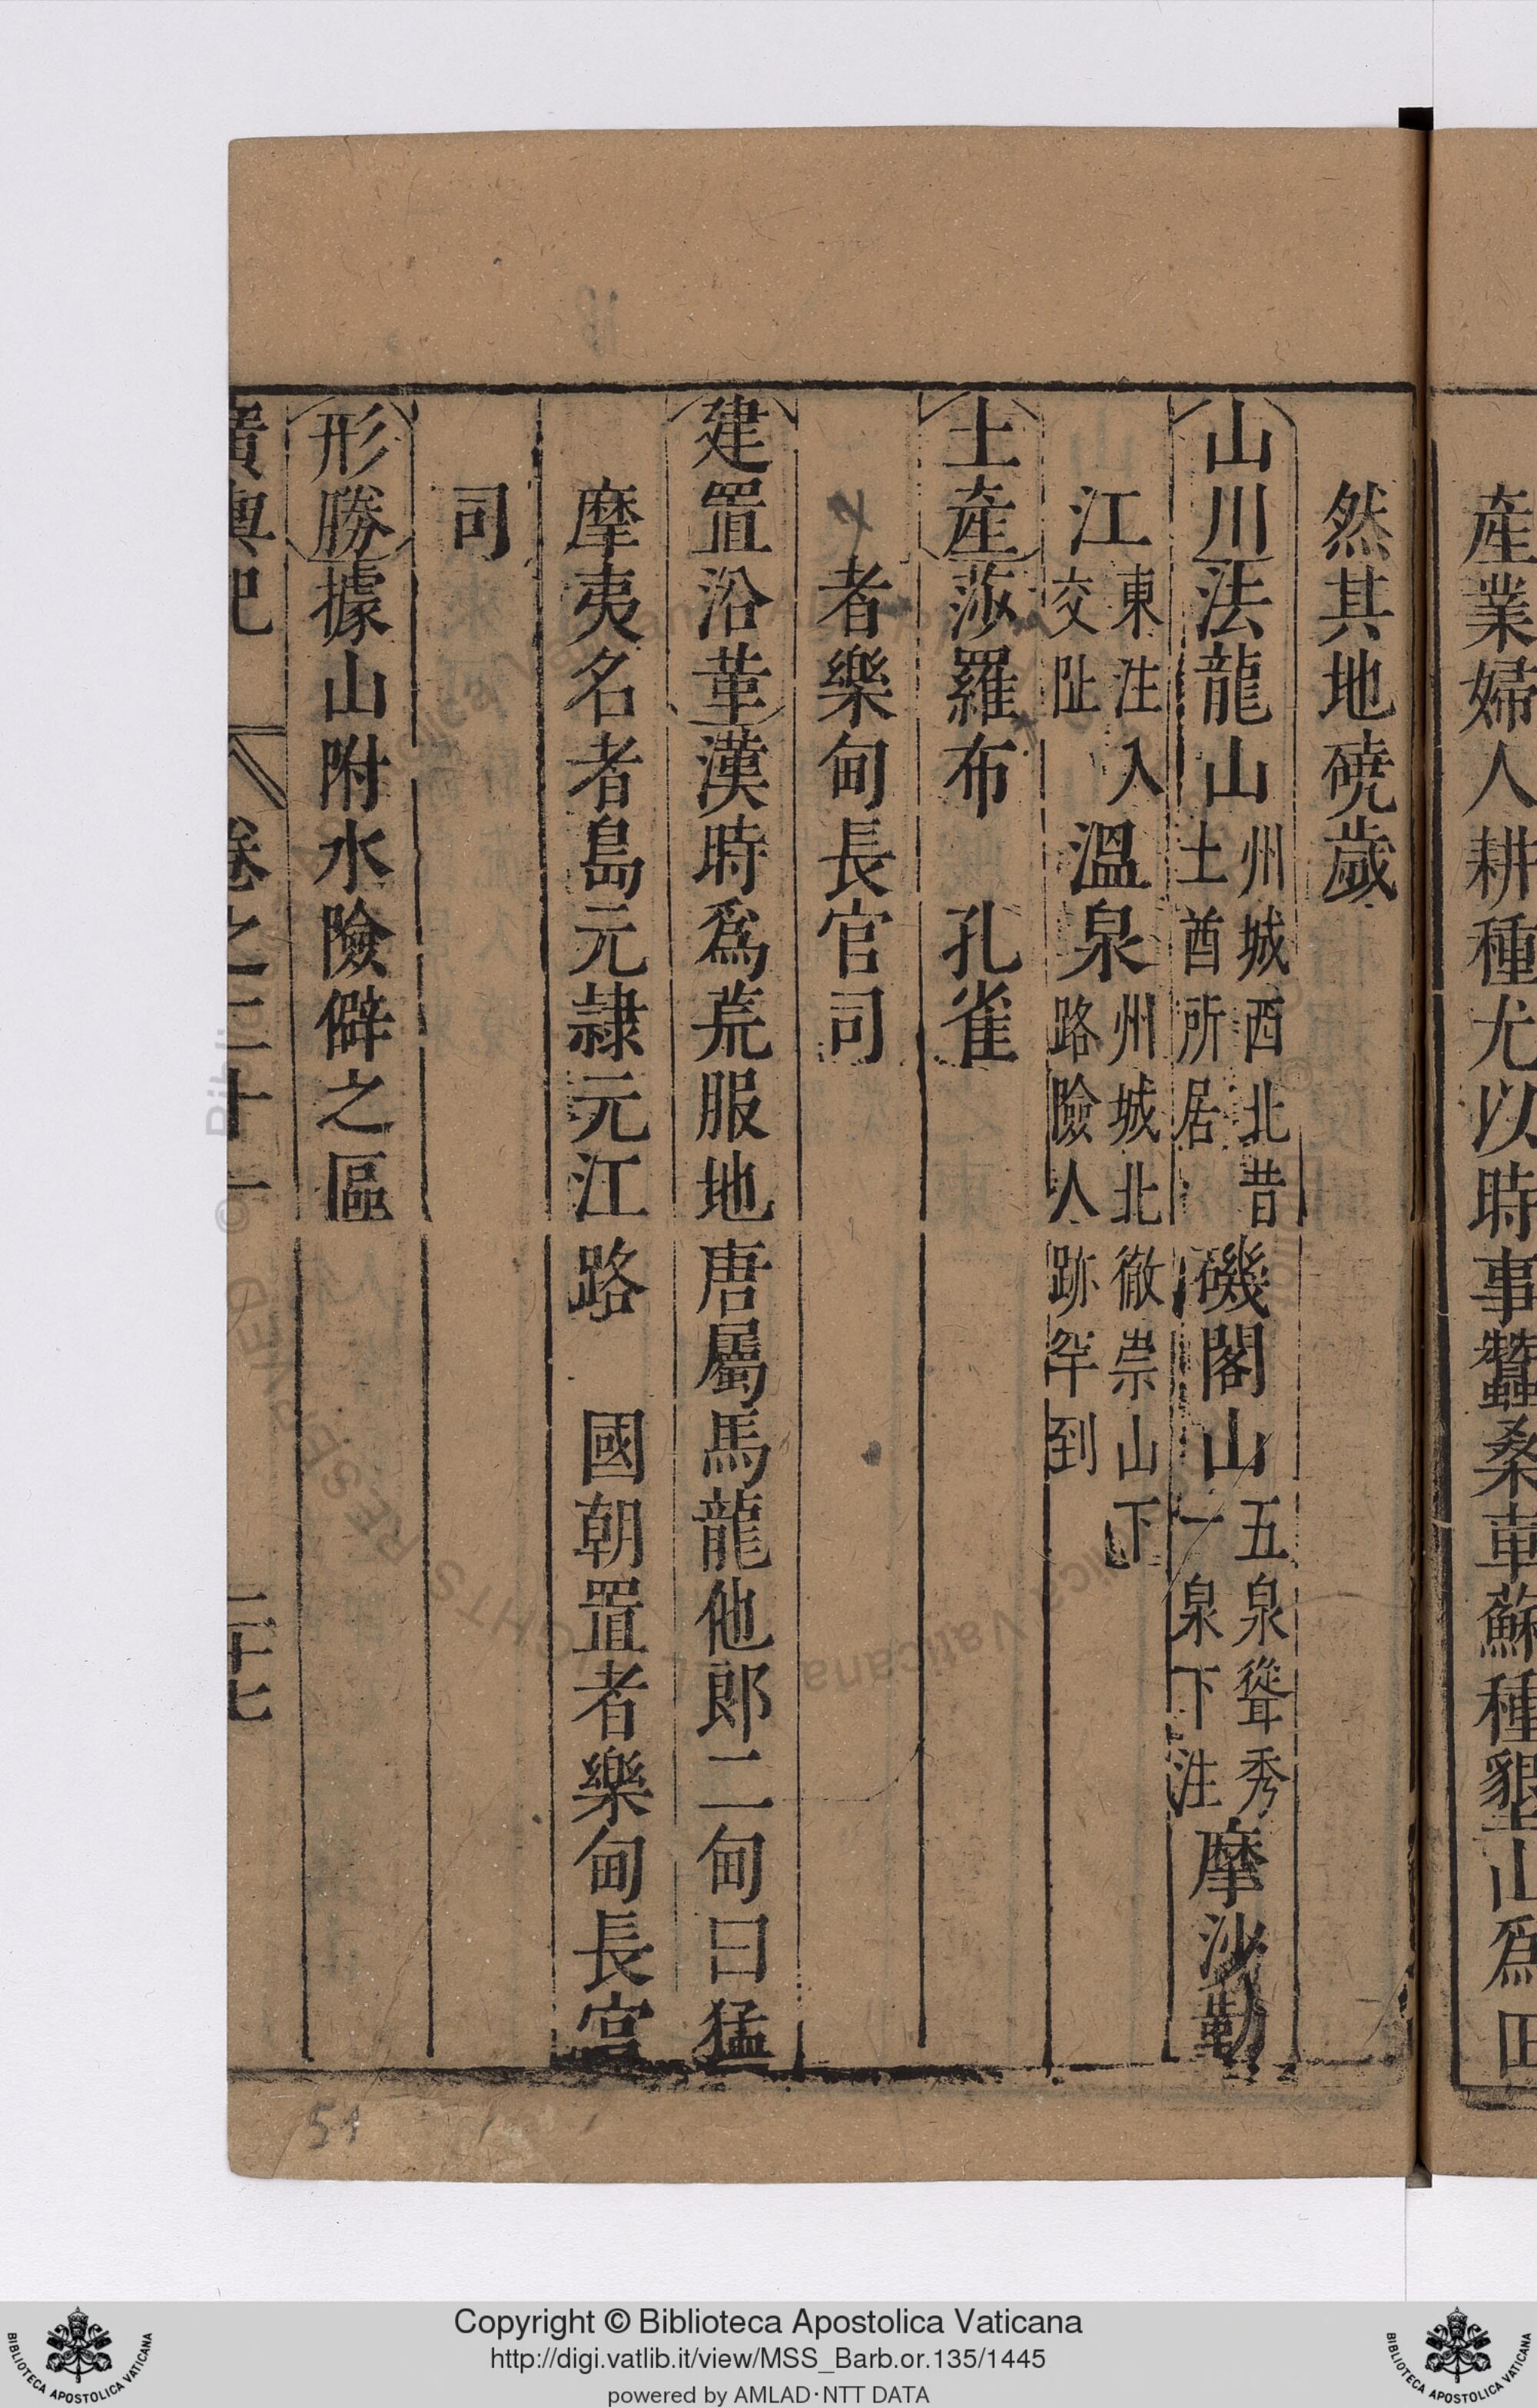 產業婦人耕種尤以時事蠶桑革蘇種墾山爲田
然其地磽歲
山川法龍山州城西北昔土酋所居磯閣山五泉聳秀一泉下注摩沙勒
江東注入交阯溫泉州城北徹崇山下路險人跡罕到
土産莎羅布　孔雀
者樂甸長官司
建置沿革漢時爲荒服地唐屬馬龍他郎二甸曰猛
摩夷名者島元隷元江路　國朝置者樂甸長官
司
形勝據山附水險僻之區
廣輿記　卷之二十一　二十七
51
Copyright © Biblioteca Apostolica Vaticana
http://digi.vatlib.it/view/MSS_Barb.or.135/1445
powered by AMLAD·NTT DATA
BIBLIOTECA APOSTOLICA VATICANA
BIBLIOTECA APOSTOLICA VATICANA